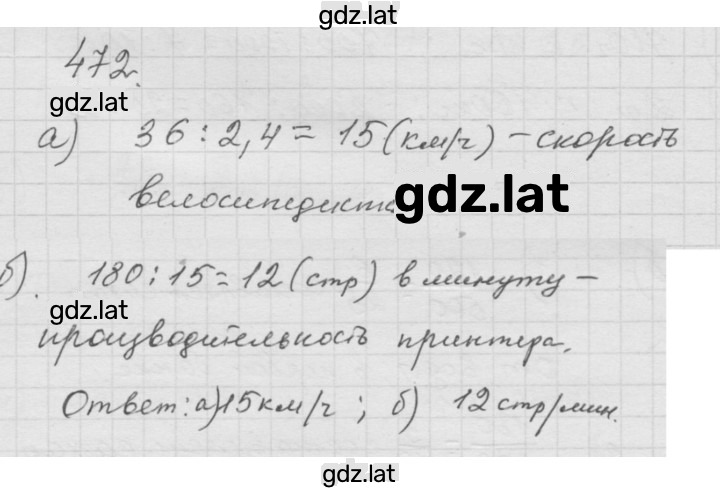 gdz.lat
472.
gdz.lat
а) 36 : 2,4 = 15 (км/ч) – скорость
велосипедиста gdz.lat
б). 180 : 15 = 12 (стр) в минуту –
gdz.lat
производительность принтера.
Ответ: а) 15 км/ч ; б) 12 стр/мин.
gdz.lat